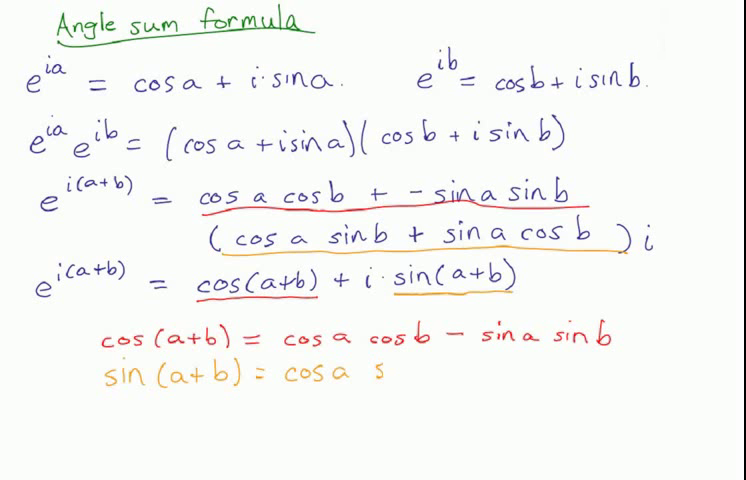 Angle sum formula
e^{ia} = cos a + i · sin a. e^{ib} = cos b + i sin b.
e^{ia} e^{ib} = (cos a + i sin a)(cos b + i sin b)
e^{i(a+b)} = cos a cos b + - sin a sin b
(cos a sin b + sin a cos b) i
e^{i(a+b)} = cos(a+b) + i · sin(a+b)
cos (a+b) = cos a cos b - sin a sin b
sin (a+b) = cos a s